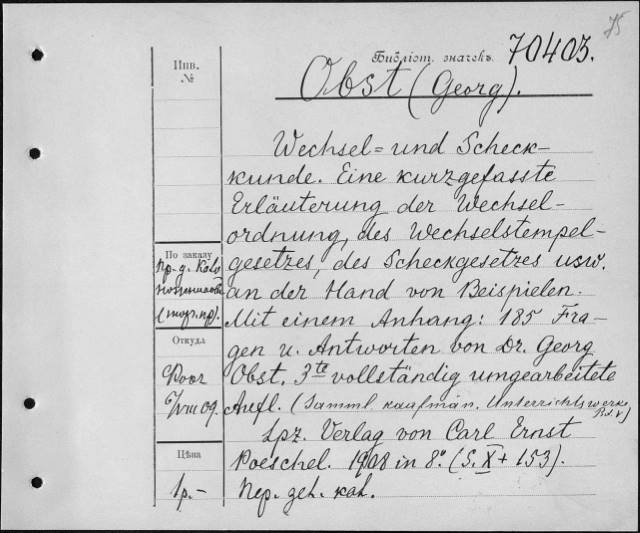 75
Библіот. значекъ 70403.
Obst (Georg).
Инв.
№
Wechsel= und Scheck-
kunde. Eine kurzgefasste
Erläuterung der Wechsel-
ordnung, des Wechselstempel-
gesetzes, des Scheckgesetzes usw.
an der Hand von Beispielen.
Mit einem Anhang: 185 Fra-
gen u. Antworten von Dr. Georg
Obst. 3te vollständig umgearbeitete
Aufl. (Samml. kaufmän. Unterrichtswerke
Bd. V)
Lpz. Verlag von Carl Ernst
Poeschel. 1908 in 8°. (S. X + 153).
Пер. цен. кат.
По заказу
Откуда
09.
Цѣна
1р.-